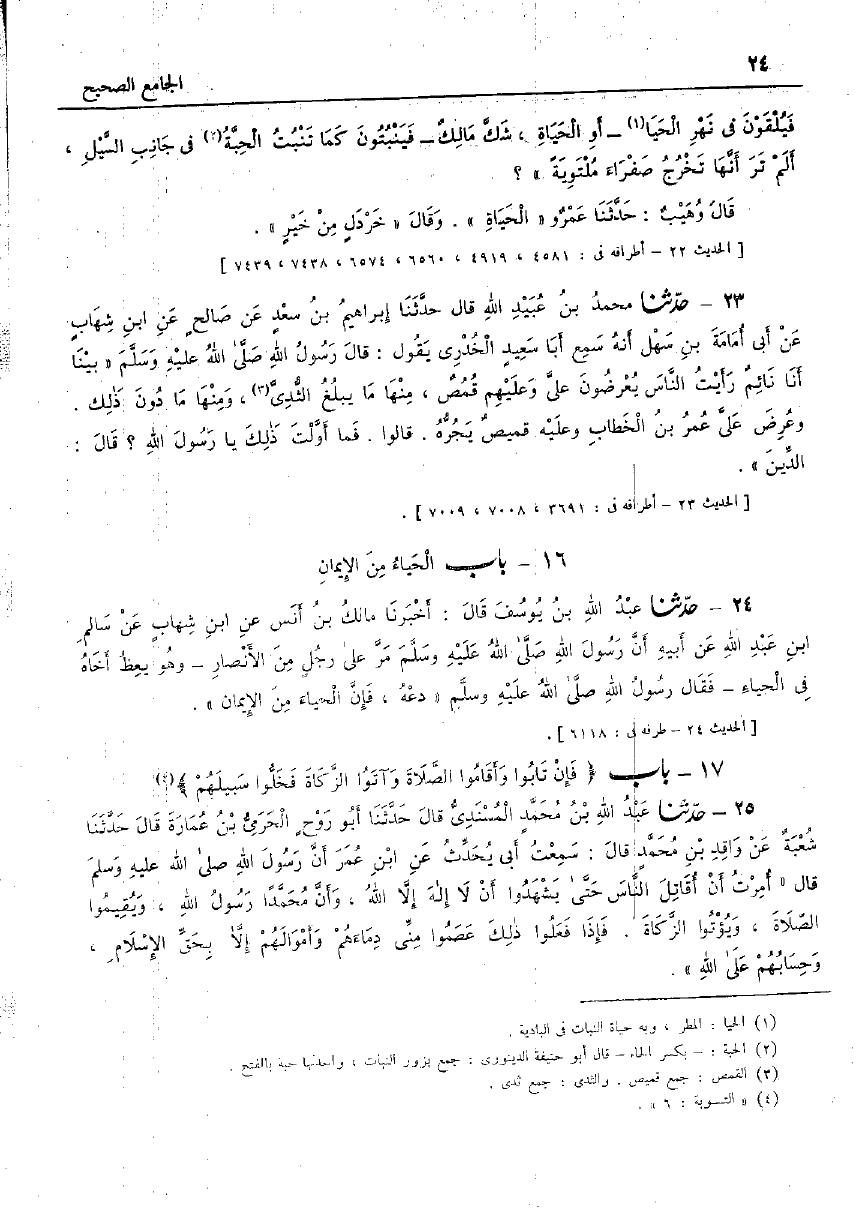 ٢٤
الجامع الصحيح
فَيُلْقَوْنَ فى نَهْرِ الْحَيَا(١) ــ أَوِ الْحَيَاةِ ، شَكَّ مَالِكٌ ــ فَيَنْبُتُونَ كَمَا تَنْبُتُ الْحِبَّةُ(٢) فى جَانِبِ السَّيْلِ ،
أَلَمْ تَرَ أَنَّهَا تَخْرُجُ صَفْرَاءَ مُلْتَوِيَةً » ؟
قَالَ وُهَيْبٌ : حَدَّثَنَا عَمْرٌو « الْحَيَاةِ » . وَقَالَ « خَرْدَلٍ مِنْ خَيْرٍ » .
[ الحديث ٢٢ – أطرافه فى : ٤٥٨١ ، ٤٩١٩ ، ٦٥٦٠ ، ٦٥٧٤ ، ٧٤٣٨ ، ٧٤٣٩ ]
٢٣ – حدّثنا محمدُ بنُ عُبَيْدِ اللهِ قال حدَّثَنَا إبراهيمُ بنُ سعْدٍ عَن صَالحٍ عَنِ ابنِ شِهَابٍ
عَنْ أبى أُمَامَةَ بنِ سَهْل أنهُ سَمِع أبَا سَعِيدٍ الْخُدْرِى يَقُول : قالَ رَسُولُ اللهِ صَلَّىٰ اللهُ عليْهِ وَسَلَّمَ « بيْنَا
أنَا نَائِمٌ رَأَيْتُ النَّاسَ يُعْرَضُونَ علىَّ وَعلَيْهِم قُمُصٌ ، مِنْهَا مَا يبلُغُ الثُّدِىَّ(٣) ، وَمِنْهَا مَا دُونَ ذٰلِكَ .
وعُرِضَ عَلَىَّ عُمرُ بنُ الْخَطَّابِ وعلَيْه قميصٌ يَجُرُّهُ . قالوا . فَما أوَّلْتَ ذٰلِكَ يا رَسُولَ اللهِ ؟ قَالَ :
الدِّينَ » .
[ الحديث ٢٣ – أطرافه فى : ٣٦٩١ ، ٧٠٠٨ ، ٧٠٠٩ ] .
١٦ – باب الْحَيَاءُ مِنَ الإيمَانِ
٢٤ – حدّثنا عبْدُ اللهِ بنُ يُوسُفَ قَالَ : أَخْبَرنَا مالكُ بنُ أنَس عنِ ابنِ شِهابٍ عَنْ سَالمِ
ابنِ عَبْدِ اللهِ عَن أبيهِ أنَّ رَسُولَ اللهِ صَلَّىٰ اللهُ عَلَيْهِ وسَلَّمَ مَرَّ علىٰ رجُلٍ مِنَ الأَنْصارِ – وهُو يعِظُ أخَاهُ
فِى الْحياءِ – فَقَال رسُولُ اللهِ صلَّىٰ اللهُ علَيْهِ وسلَّم « دعْهُ ، فَإنَّ الْحياءَ مِنَ الإيمَان » .
[ الحديث ٢٤ – طرفه فى : ٦١١٨ ] .
١٧ – باب ﴿ فَإِنْ تَابُوا وَأَقَامُوا الصَّلَاةَ وَآتَوُا الزَّكَاةَ فَخَلُّوا سَبِيلَهُمْ ﴾(٤)
٢٥ – حدّثنا عَبْدُ اللهِ بْنُ مُحَمَّدٍ الْمُسْنَدِىُّ قالَ حدَّثَنَا أبُو رَوْحٍ الْحَرَمِىُّ بْنُ عُمَارَةَ قَالَ حَدَّثَنَا
شُعْبَةُ عَنْ وَاقِدِ بْنِ مُحَمَّدٍ قالَ : سَمِعْتُ أبى يُحَدِّثُ عَنِ ابْنِ عُمَرَ أنَّ رَسُولَ اللهِ صلىٰ الله عليهِ وسلمَ
قال « أُمِرْتُ أَنْ أُقَاتِلَ النَّاسَ حَتَّىٰ يَشْهَدُوا أَنْ لَا إِلٰهَ إِلَّا اللهُ ، وَأَنَّ مُحَمَّدًا رَسُولُ اللهِ ، وَيُقِيمُوا
الصَّلَاةَ ، وَيُؤْتُوا الزَّكَاةَ . فَإِذَا فَعَلُوا ذٰلِكَ عَصَمُوا مِنِّى دِمَاءَهُمْ وَأَمْوَالَهُمْ إِلَّا بِحَقِّ الإِسْلَامِ ،
وَحِسَابُهُمْ عَلَىٰ اللهِ » .
(١) الحيا : المطر ، وبه حياة النبات فى البادية .
(٢) الحبة : – بكسر الحاء – قال أبو حنيفة الدينورى : جمع بزور النبات ، واحدتها حبة بالفتح .
(٣) القمص : جمع قميص . والثدى : جمع ثدى .
(٤) « التسوبة : ٦ » .